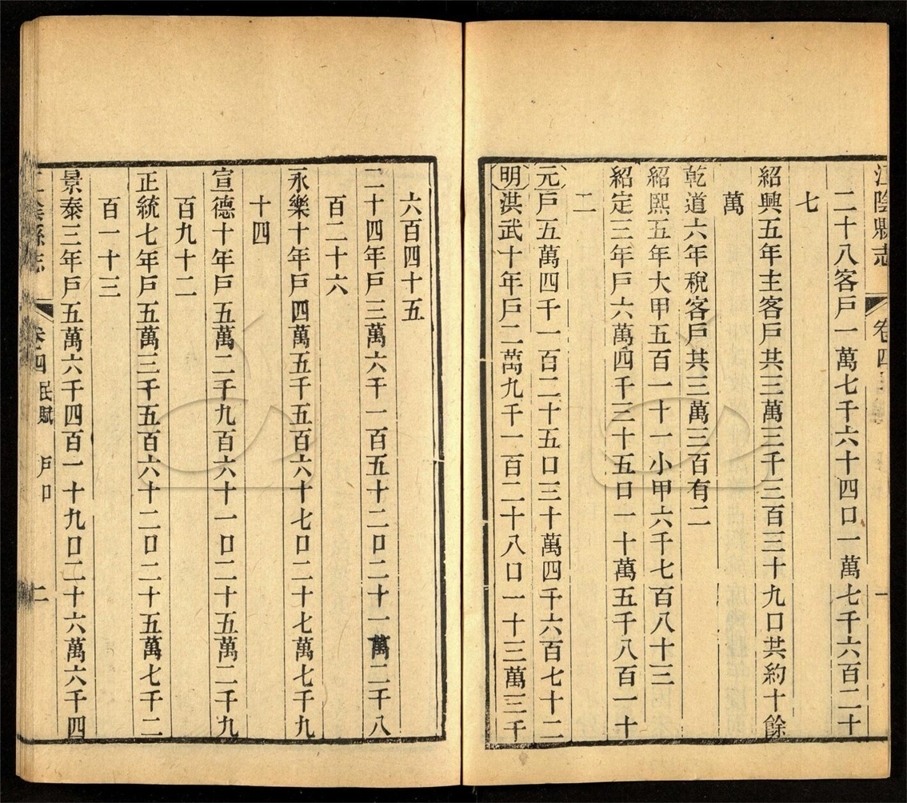 江陰縣志 卷四
二十八客戶一萬七千六十四口一萬七千六百二十
七
紹興五年主客戶共三萬三千三百三十九口共約十餘
萬
乾道六年稅客戶共三萬三百有二
紹熙五年大甲五百一十一小甲六千七百八十三
紹定三年戶六萬四千三十五口一十萬五千八百一十
二
元戶五萬四千一百二十五口三十萬四千六百七十二
明洪武十年戶二萬九千一百二十八口一十三萬三千
六百四十五
二十四年戶三萬六千一百五十二口二十一萬二千八
百二十六
永樂十年戶四萬五千五百六十七口二十七萬七千九
十四
宣德十年戶五萬二千九百六十一口二十五萬二千九
百九十二
正統七年戶五萬三千五百六十二口二十五萬七千二
百一十三
景泰三年戶五萬六千四百一十九口二十六萬六千四
江陰縣志 卷四 民賦 戶口 二